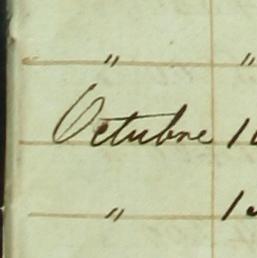 " "
Octubre 1
" 1